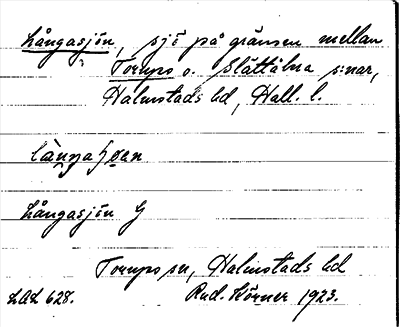 Långasjön, sjö på gränsen mellan
Torups o. Slättåkra s:nar,
Halmstads hd, Hall. l.
Långasjön G
Torups sn, Halmstads hd
LAL 628. Rud. Körner 1923.